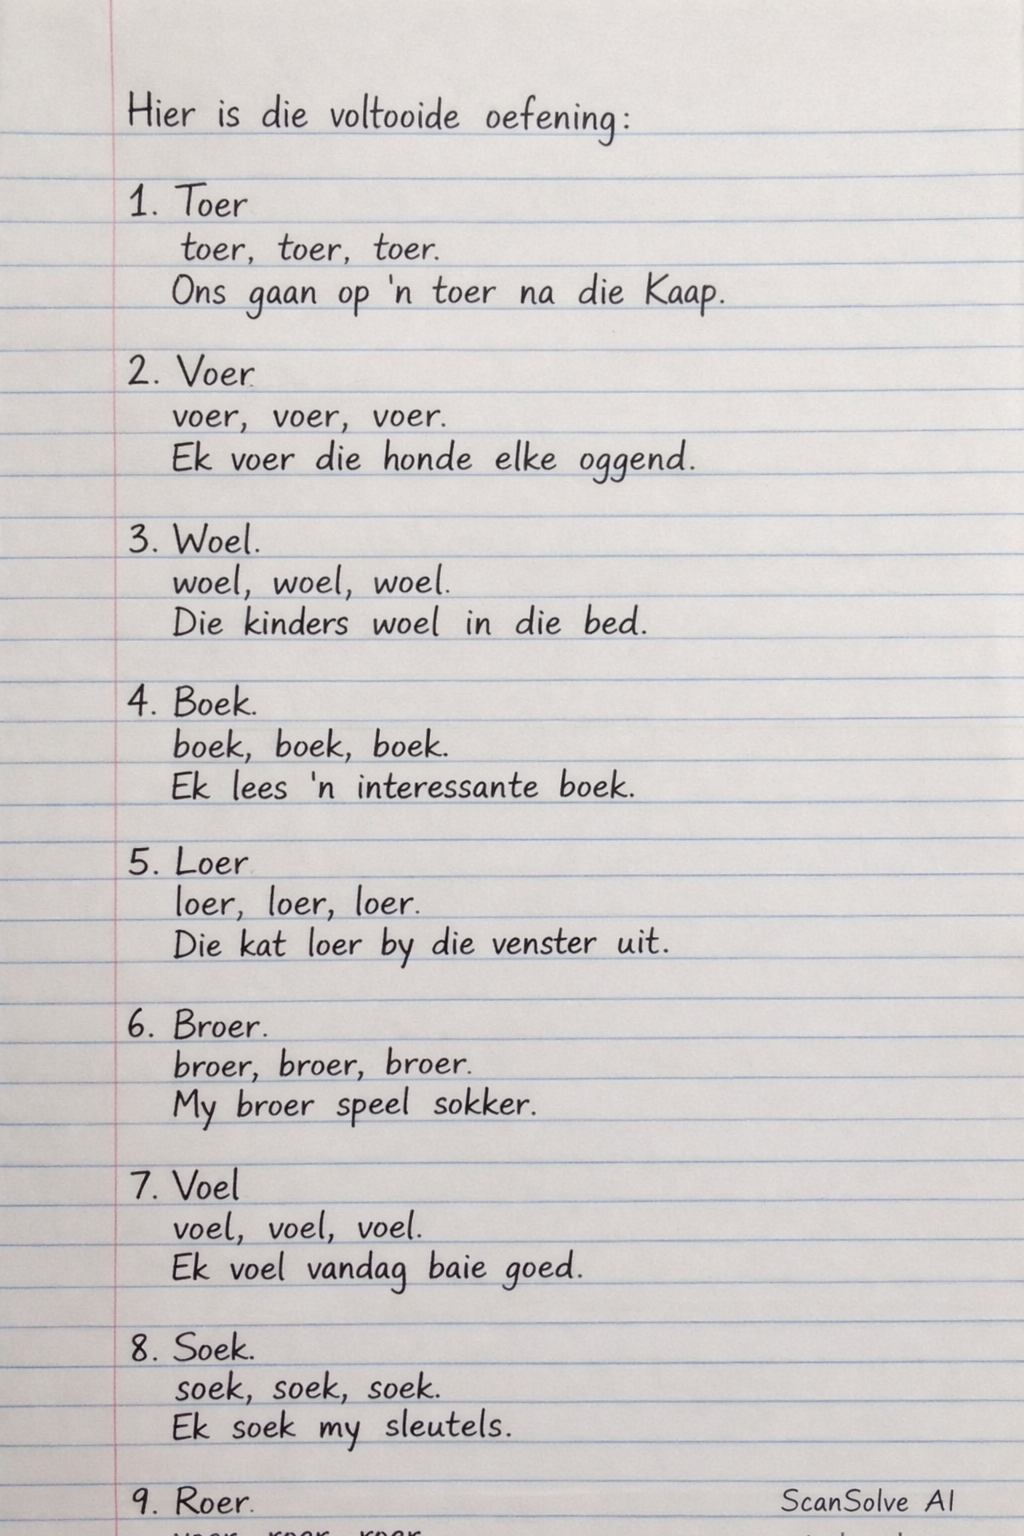 Hier is die voltooide oefening:
1. Toer
toer, toer, toer.
Ons gaan op 'n toer na die Kaap.
2. Voer.
voer, voer, voer.
Ek voer die honde elke oggend.
3. Woel.
woel, woel, woel.
Die kinders woel in die bed.
4. Boek.
boek, boek, boek.
Ek lees 'n interessante boek.
5. Loer
loer, loer, loer.
Die kat loer by die venster uit.
6. Broer.
broer, broer, broer.
My broer speel sokker.
7. Voel
voel, voel, voel.
Ek voel vandag baie goed.
8. Soek.
soek, soek, soek.
Ek soek my sleutels.
9. Roer.
ScanSolve AI